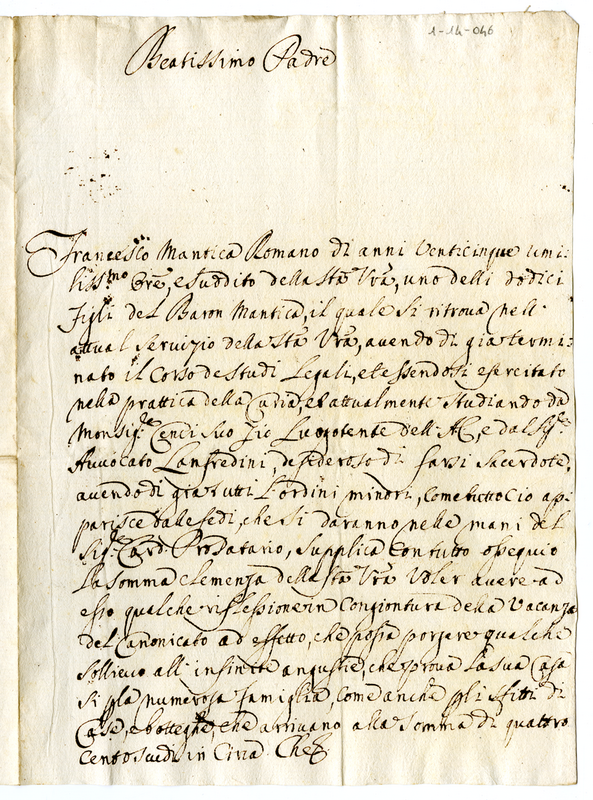 1-14-046
Beatissimo Padre
Francesco Mantica Romano di anni Venticinque umi:
liss.mo Ore, e suddito della Stà Vrà, uno delli dodici
figli del Baron Mantica, il quale si ritrova nell'
attual servizio della Stà Vrà, avendo di già termi:
nato il Corso de Studi Legali, et essendosi esercitato
nella prattica della Curia, et attualmente studiando da
Monsig.re Cenci suo Zio Luogotente dell'AC, e dal Sig.r
Avvocato Lanfredini, desideroso di farsi Sacerdote,
avendo di già tutti l'ordini minori, come tutto ciò ap:
parisce dalle fedi, che si daranno nelle mani del
Sig.r Card. ProDatario, supplica con tutto ossequio
la somma clemenza della Stà Vrà voler avere ad
esso qualche riflessione in congiontura della vacanza
del Canonicato ad effetto, che possa porgere qualche
sollievo all'infinite angustie, che prova la sua Casa
si p la numerosa famiglia, come anche p gli sfitti di
Case, e botteghe che arrivano alla somma di quattro
cento scudi in circa. Che